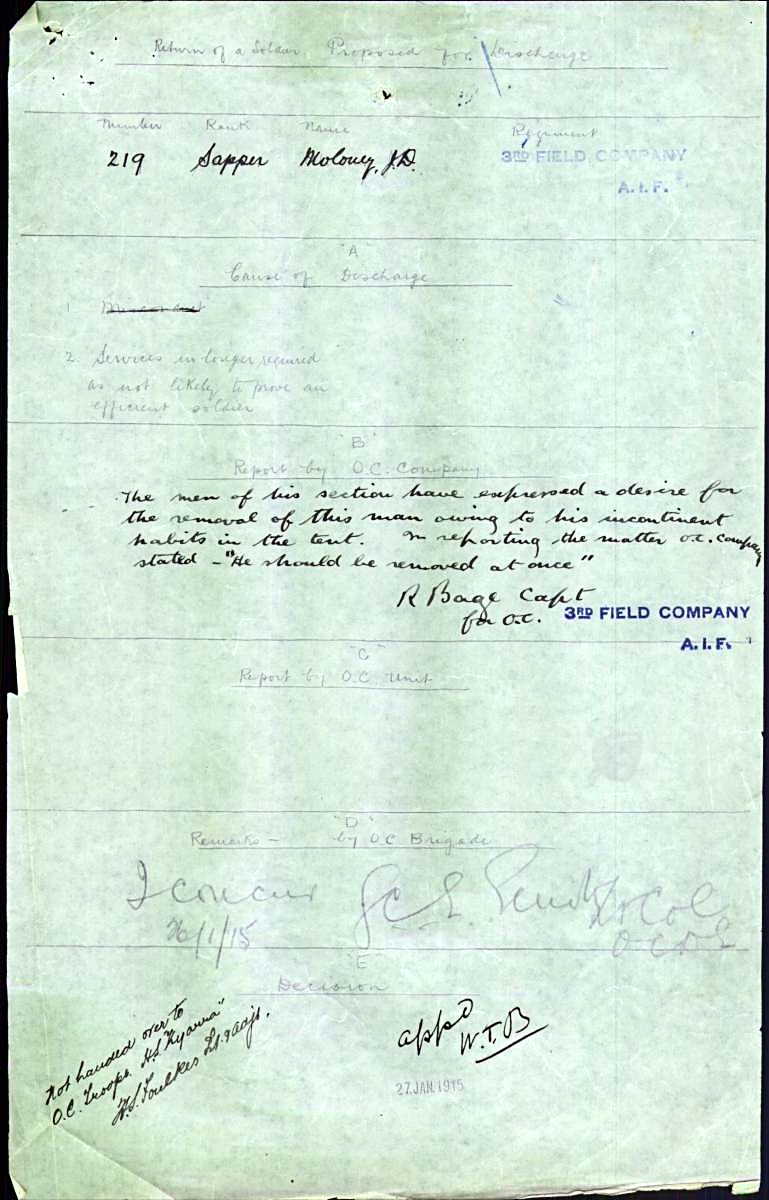 Return of a Soldier Proposed for Discharge
Number Rank Name Regiment
219 Sapper Moloney, J.D. 3RD FIELD COMPANY
A.I.F.
"A"
Cause of Discharge
1 Misconduct
2. Services no longer required
as not likely to prove an
efficient soldier
"B"
Report by O.C. Company
The men of his section have expressed a desire for
the removal of this man owing to his incontinent
habits in the tent. In reporting the matter O.C. Company
stated - "He should be removed at once"
R Bage Capt
for O.C. 3RD FIELD COMPANY
A.I.F.
"C"
Report by O.C. Unit
"D"
Remarks - by OC Brigade
I concur
26/1/15 Lt Col
"E"
Decision
Not handed over to
O.C. Troops H.S. "Kyarra"
H.S. Foulkes Lt. & Adjt.
appd
W.T.B
27. JAN. 1915